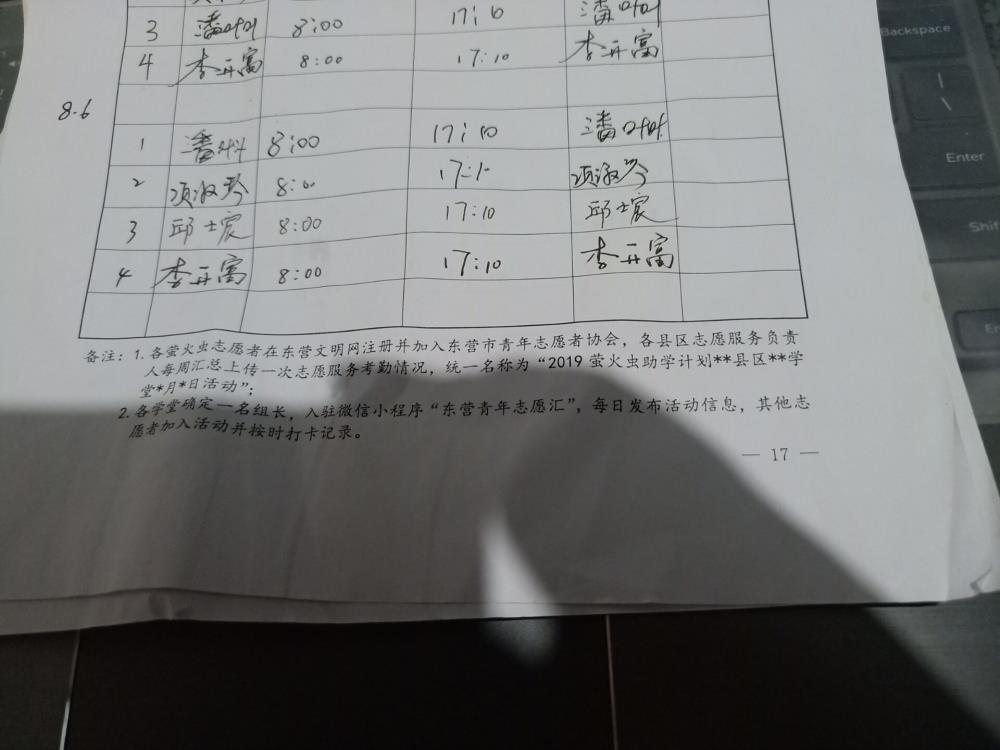 3 潘叶叶 8:00 17:10 潘叶叶
4 李开富 8:00 17:10 李开富
8.6
1 潘叶叶 8:00 17:10 潘叶叶
2 项淑琴 8:00 17:10 项淑琴
3 邱士宸 8:00 17:10 邱士宸
4 李开富 8:00 17:10 李开富
备注：1. 各萤火虫志愿者在东营文明网注册并加入东营市青年志愿者协会，各县区志愿服务负责
人每周汇总上传一次志愿服务考勤情况，统一名称为“2019 萤火虫助学计划**县区**学
堂*月*日活动”；
2. 各学堂确定一名组长，入驻微信小程序“东营青年志愿汇”，每日发布活动信息，其他志
愿者加入活动并按时打卡记录。
— 17 —
Backspace
|
\
Enter
Shif